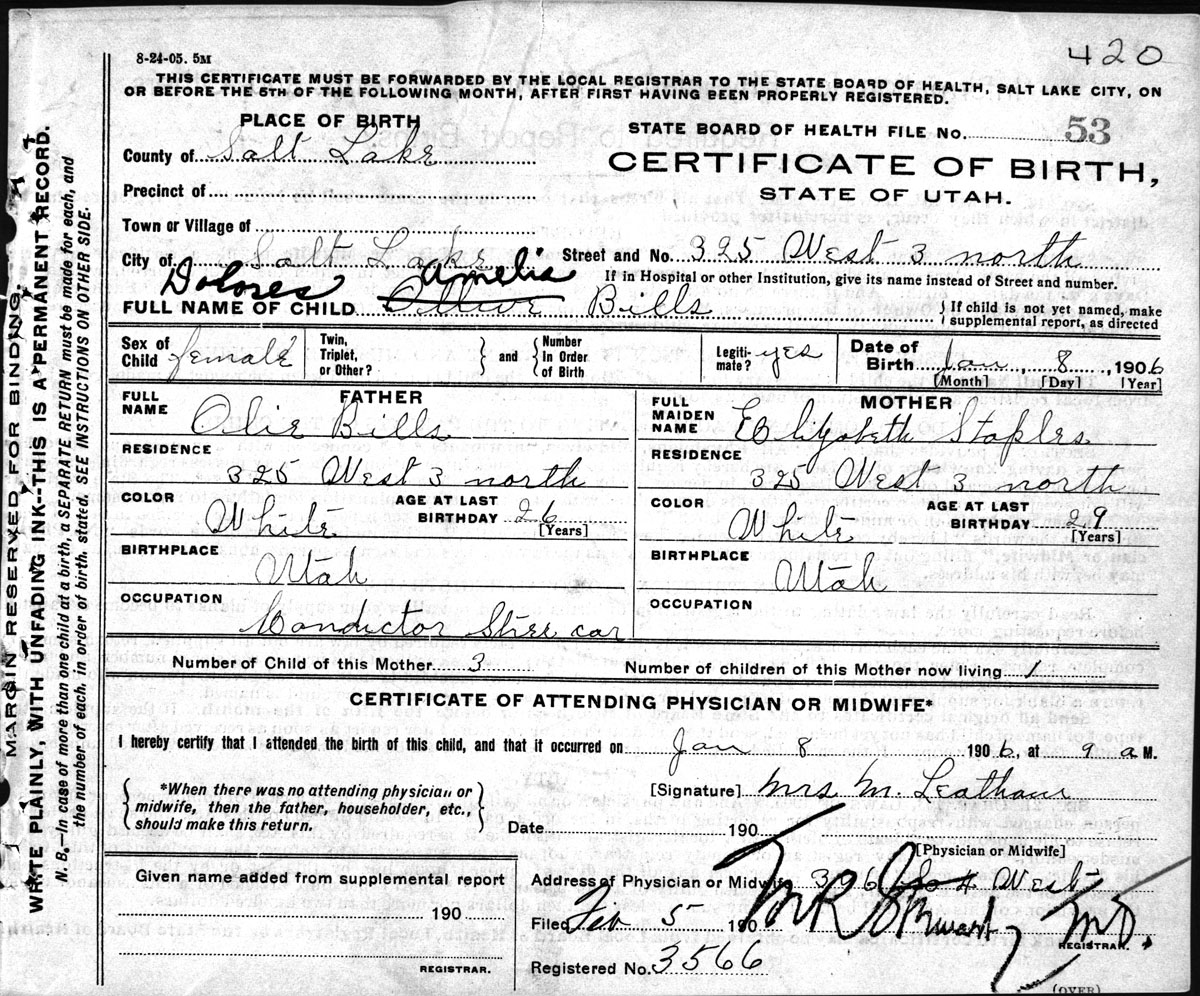 8-24-05. 5M
420
THIS CERTIFICATE MUST BE FORWARDED BY THE LOCAL REGISTRAR TO THE STATE BOARD OF HEALTH, SALT LAKE CITY, ON
OR BEFORE THE 5TH OF THE FOLLOWING MONTH, AFTER FIRST HAVING BEEN PROPERLY REGISTERED.
PLACE OF BIRTH
County of Salt Lake
Precinct of
Town or Village of
City of Salt Lake
STATE BOARD OF HEALTH FILE No. 53
CERTIFICATE OF BIRTH,
STATE OF UTAH.
Street and No. 325 West 3 north
If in Hospital or other Institution, give its name instead of Street and number.
Dolores Amelia
FULL NAME OF CHILD Bills
If child is not yet named, make
supplemental report, as directed
Sex of Child female
Twin, Triplet, or Other?
and
Number In Order of Birth
Legiti-mate? yes
Date of Birth Jan 8, 1906
[Month] [Day] [Year]
FATHER
FULL NAME Olie Bills
RESIDENCE
325 West 3 north
COLOR White
AGE AT LAST BIRTHDAY 26
[Years]
BIRTHPLACE
Utah
OCCUPATION
Conductor Stree car
MOTHER
FULL MAIDEN NAME Elizabeth Staples
RESIDENCE
325 West 3 north
COLOR White
AGE AT LAST BIRTHDAY 29
[Years]
BIRTHPLACE
Utah
OCCUPATION
Number of Child of this Mother 3
Number of children of this Mother now living 1
CERTIFICATE OF ATTENDING PHYSICIAN OR MIDWIFE*
I hereby certify that I attended the birth of this child, and that it occurred on Jan 8 1906, at 9 a M.
*When there was no attending physician or
midwife, then the father, householder, etc.,
should make this return.
[Signature] Mrs M. Leatham
Date 190
[Physician or Midwife]
Given name added from supplemental report
190
REGISTRAR.
Address of Physician or Midwife 396 So 4 West
Filed Feb 5 190
M.D.
REGISTRAR.
Registered No. 3566
(OVER)
MARGIN RESERVED FOR BINDING
WRITE PLAINLY, WITH UNFADING INK--THIS IS A PERMANENT RECORD.
N. B.—In case of more than one child at a birth, a SEPARATE RETURN must be made for each, and
the number of each, in order of birth, stated. SEE INSTRUCTIONS ON OTHER SIDE.